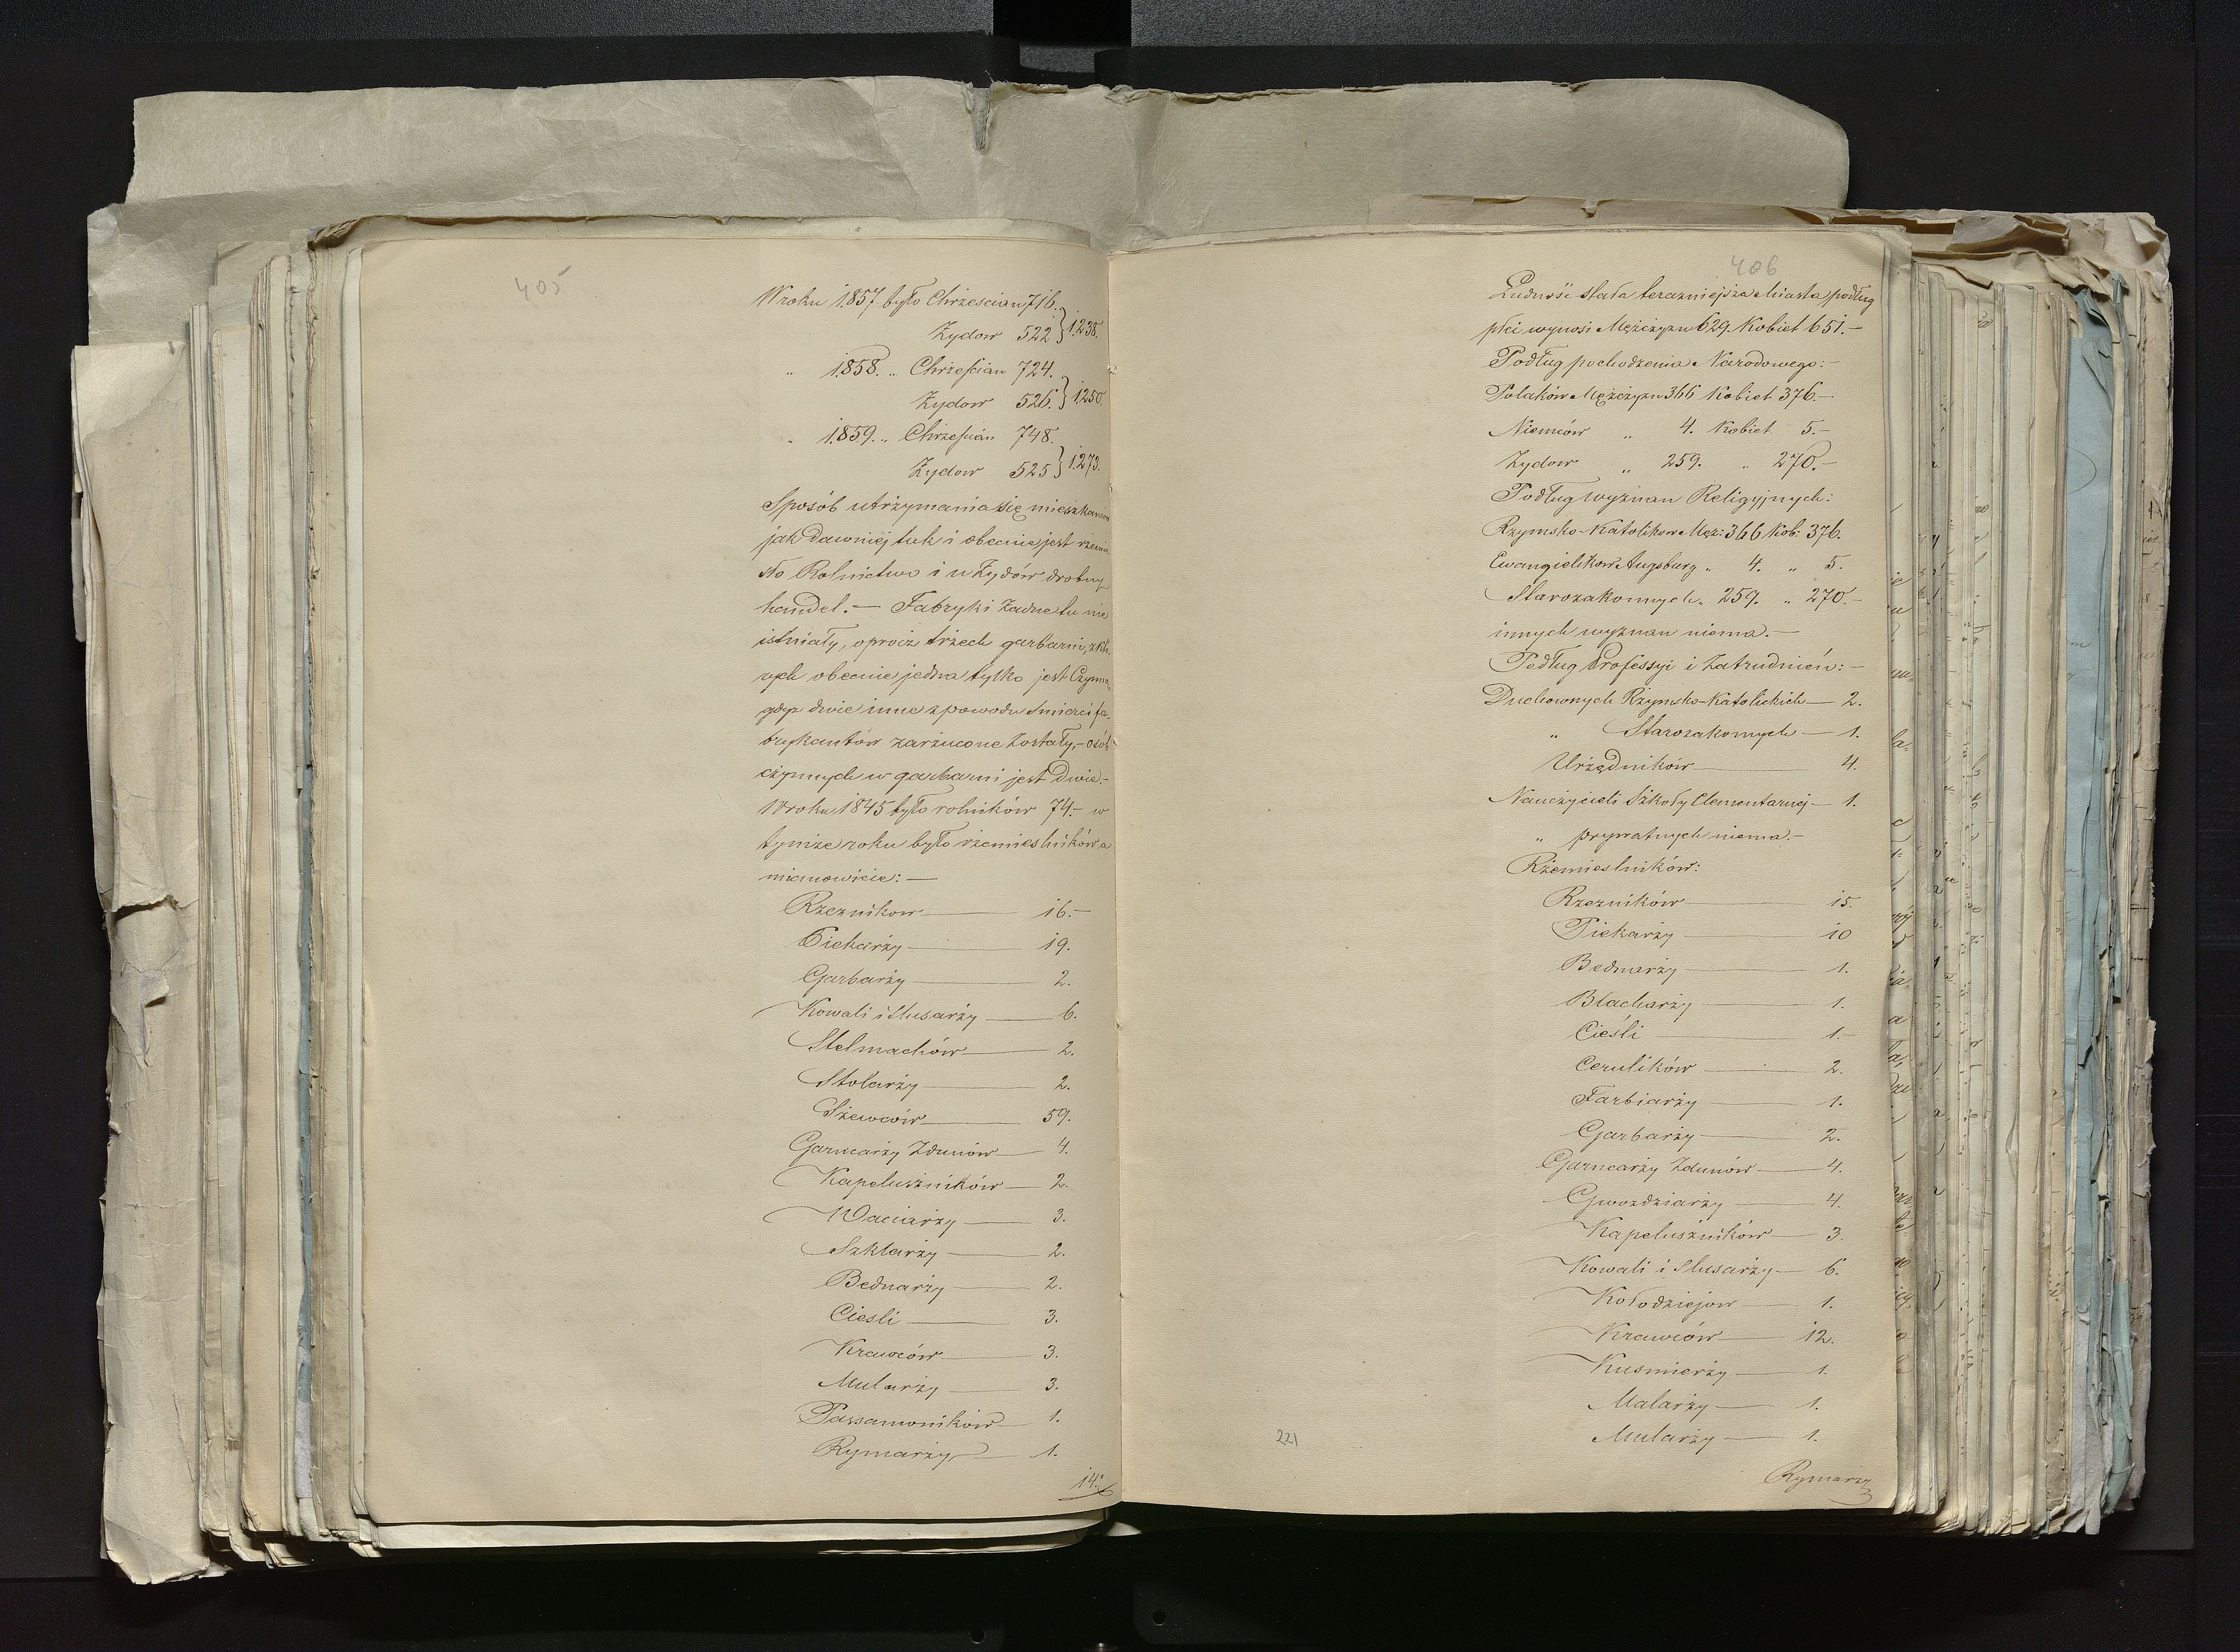 405
W roku 1857 było Chrzescian 716.
Zydow 522 } 1.238.
„ 1858. „ Chrzescian 724.
Zydow 526. } 1.250.
„ 1859. „ Chrzescian 748.
Zydow 525 } 1.273.
Sposób utrzymania się mieszkancow
jak dawniej tak i obecnie jest rzemio
sło Rolnictwo i u Zydów drobny
handel. — Fabryki żadne tu nie
istniały, oprócz trzech garbarni, z któ
rych obecnie jedna tylko jest Czynna
gdyż dwie inne z powodu smierci fa-
brykantów zarzucone zostały, – osób
czynnych w garbarni jest dwie. –
W roku 1845 było rolników 74. – w
tymże roku było rzemieslników a
mianowicie: —
Rzeznikow — 16. –
Piekarzy — 19.
Garbarzy — 2.
Kowali i Slusarzy — 6.
Stelmachów — 2.
Stolarzy — 2.
Szewców — 59.
Garncarzy Zdunów — 4.
Kapeluszników — 2.
Waciarzy — 3.
Szklarzy — 2.
Bednarzy — 2.
Ciesli — 3.
Krawców — 3.
Mularzy — 3.
Passamoników — 1.
Rymarzy — 1.
14.
406
Ludność stała terazniejsza Miasta podług
płci wynosi Mężczyzn 629. Kobiet 651. –
Podług pochodzenia Narodowego: –
Polaków Mężczyzn 366 Kobiet 376. –
Niemców „ 4. Kobiet 5. –
Zydow „ 259. „ 270. –
Podług wyznan Religijnych:
Rzymsko-Katolikow Męz: 366 Kob: 376.
Ewangielikow Augsburg „ 4. „ 5.
Starozakonnych „ 259. „ 270. –
innych wyznan niema. —
Podług Professyi i Zatrudnień: –
Duchownych Rzymsko-Katolickich — 2.
„ Starozakonnych — 1.
Urzędników — 4.
Nauczycieli Szkoły Elementarnej — 1.
„ prywatnych niema. –
Rzemieslników:
Rzezników — 15.
Piekarzy — 10
Bednarzy — 1.
Blacharzy — 1.
Cieśli — 1. –
Cerulików — 2.
Farbiarzy — 1.
Garbarzy — 2.
Garncarzy Zdunów — 4.
Gwozdziarzy — 4.
Kapeluszników — 3.
Kowali i Slusarzy — 6.
Kołodziejow — 1.
Krawców — 12.
Kusmierzy — 1.
Malarzy — 1.
Mularzy — 1.
Rymarzy
221